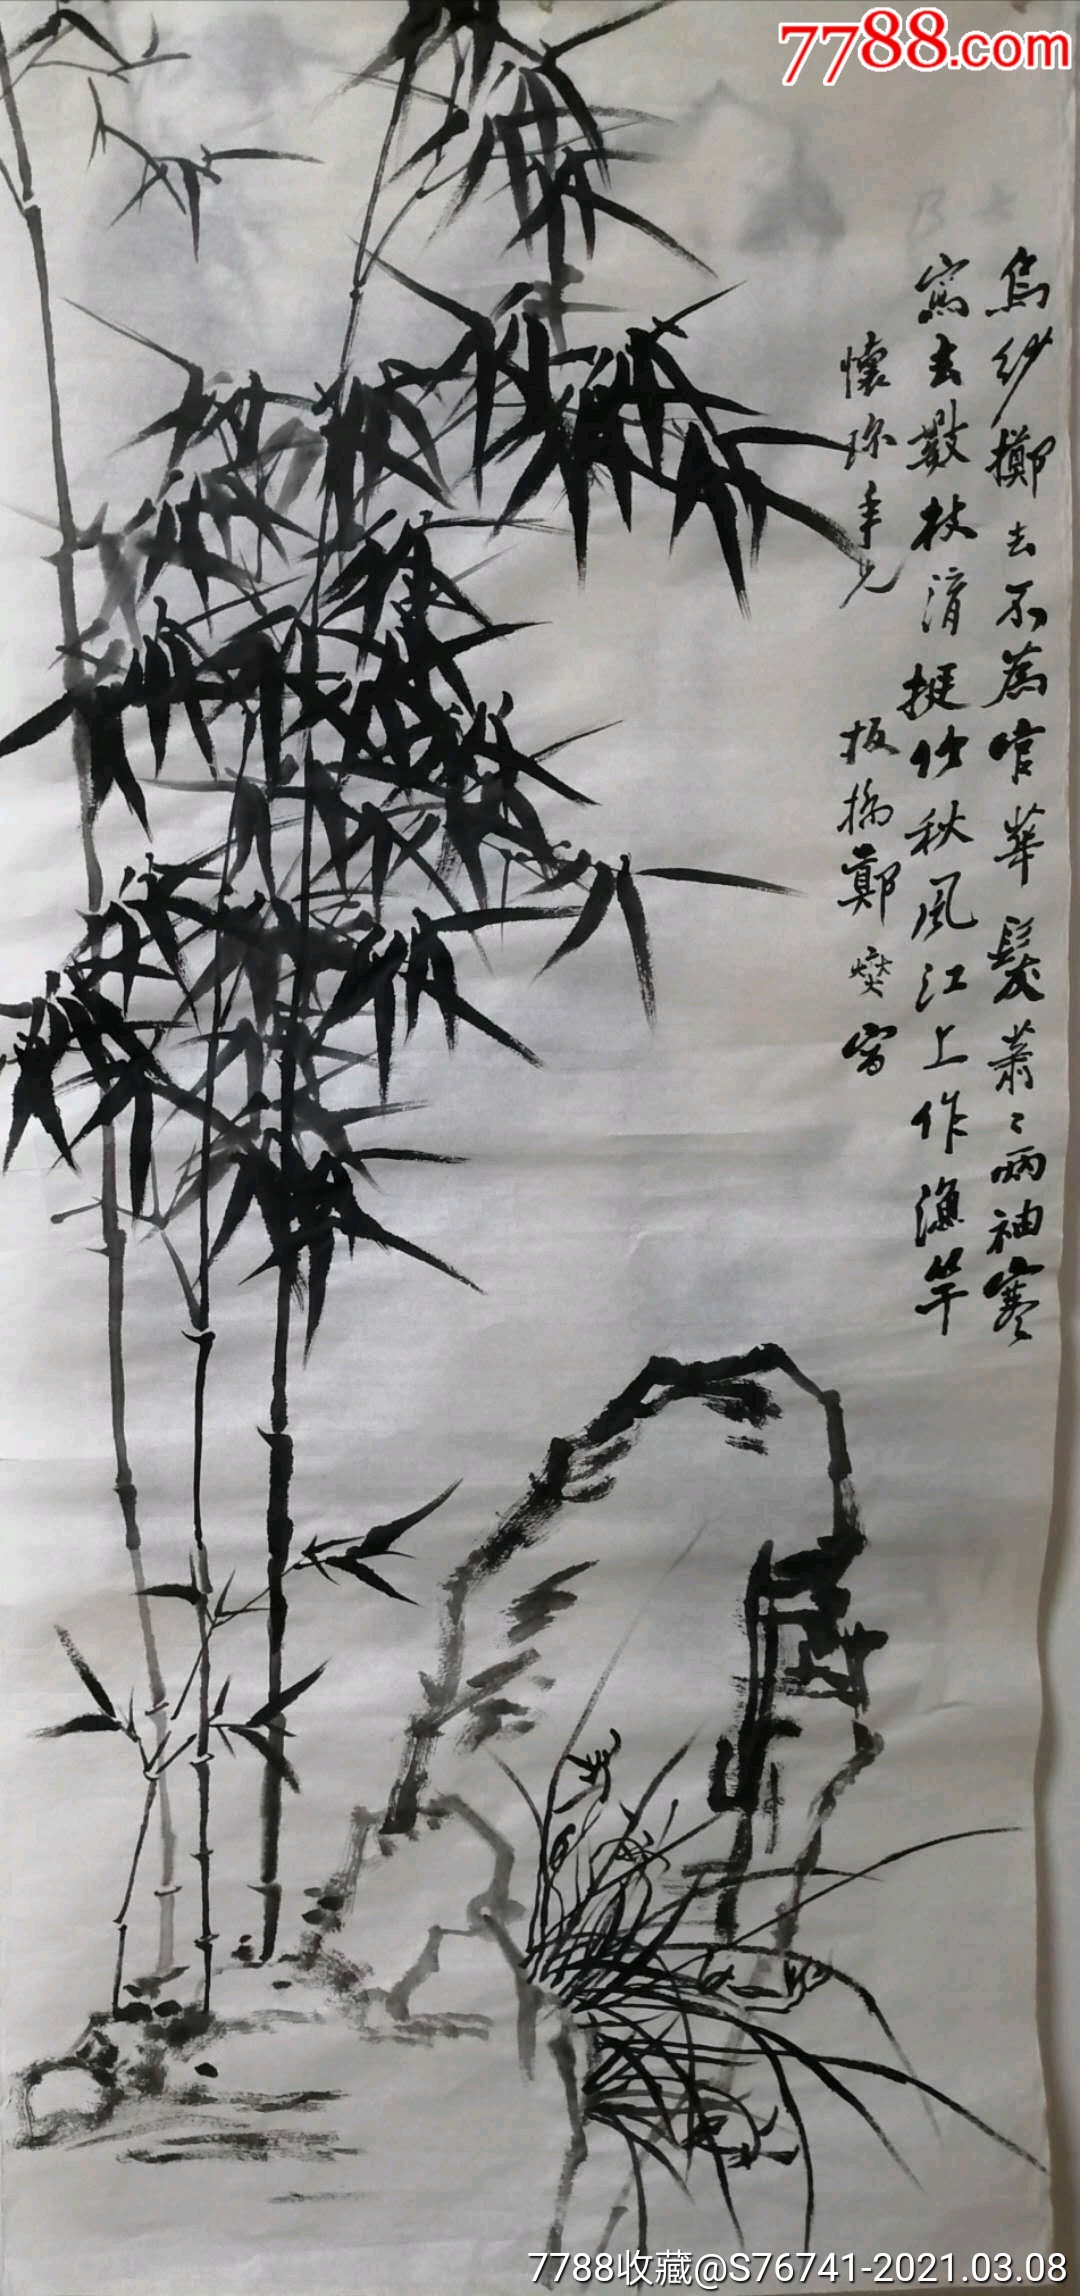 7788.com
烏紗擲去不為官華髮蕭〻兩袖寒
寫去數枝清挺竹秋風江上作漁竿
懷珎年兄
板橋鄭燮寫
7788收藏@S76741-2021.03.08